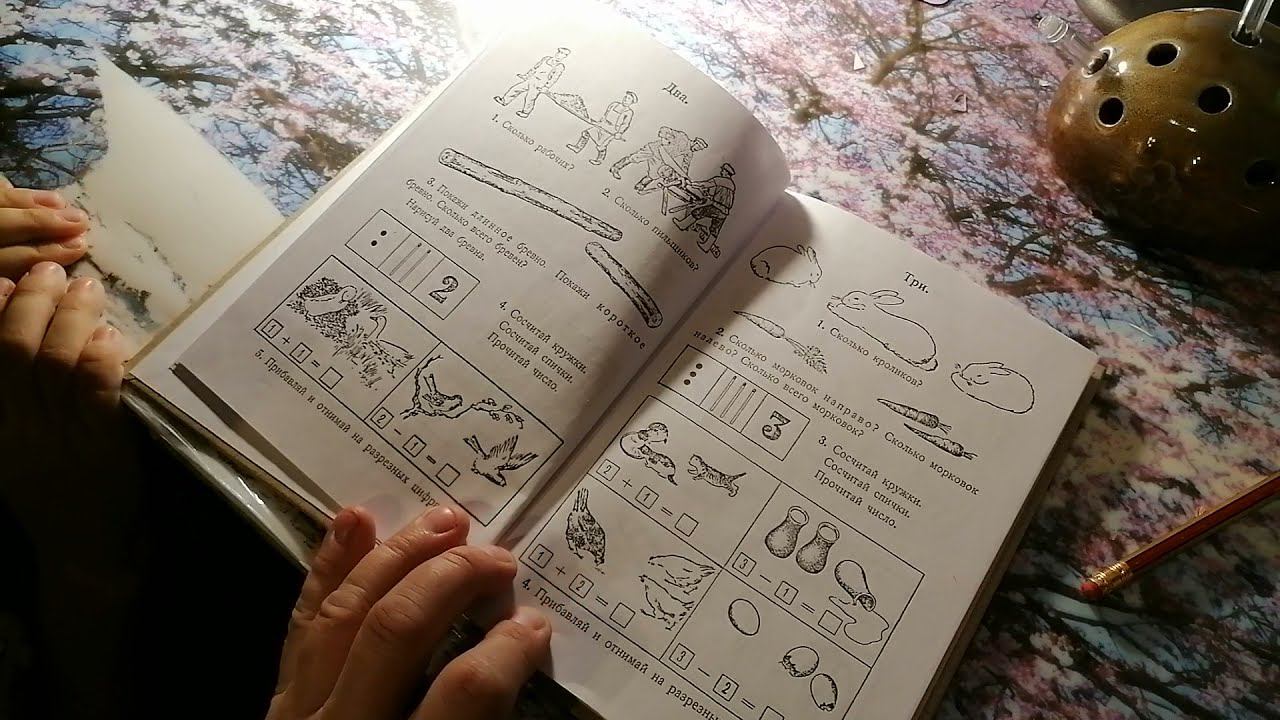 Два.
1. Сколько рабочих?
2. Сколько пильщиков?
3. Покажи длинное бревно. Покажи короткое
бревно. Сколько всего бревен?
Нарисуй два бревна.
2
4. Сосчитай кружки.
Сосчитай спички.
Прочитай число.
1 + 1 =
2 - 1 =
5. Прибавляй и отнимай на разрезных
Три.
1. Сколько кроликов?
2. Сколько морковок направо? Сколько морковок
налево? Сколько всего морковок?
3
3. Сосчитай кружки.
Сосчитай спички.
Прочитай число.
2 + 1 =
3 - 1 =
1 + 2 =
3 - 2 =
4. Прибавляй и отнимай на